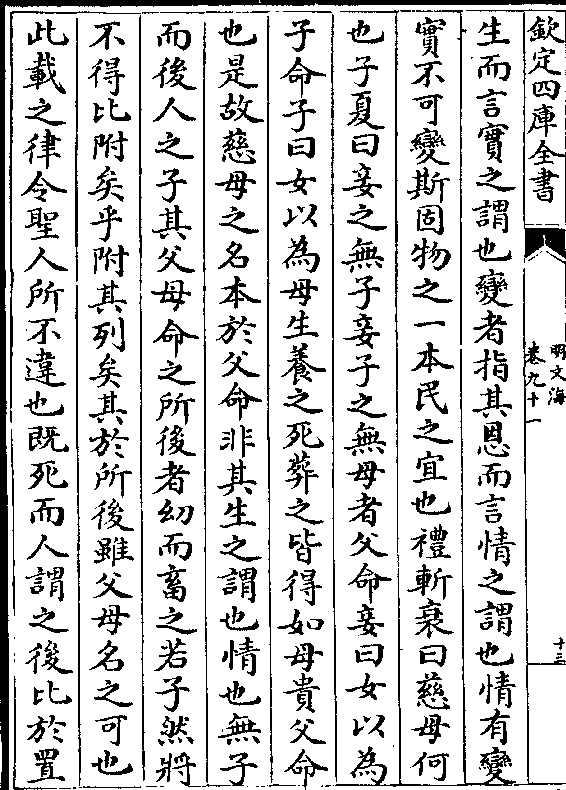 欽定四庫全書
明文海
卷九十一
十三
生而言實之謂也變者指其恩而言情之謂也情有變
實不可變斯固物之一本民之宜也禮斬衰曰慈母何
也子夏曰妾之無子妾子之無母者父命妾曰女以為
子命子曰女以為母生養之死葬之皆得如母貴父命
也是故慈母之名本於父命非其生之謂也情也無子
而後人之子其父母命之所後者幼而畜之若子然將
不得比附矣乎附其列矣其於所後雖父母名之可也
此載之律令聖人所不違也既死而人謂之後比於置